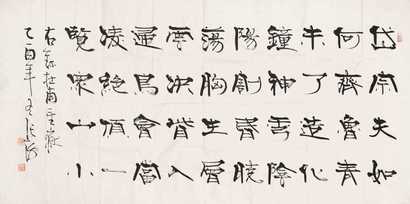 岱宗夫如
何齊魯青
未了造化
鐘神秀陰
陽割昏曉
蕩胸生層
雲決眥入
歸鳥會當
凌絕頂一
覽眾山小
右錄杜甫望嶽
乙酉年